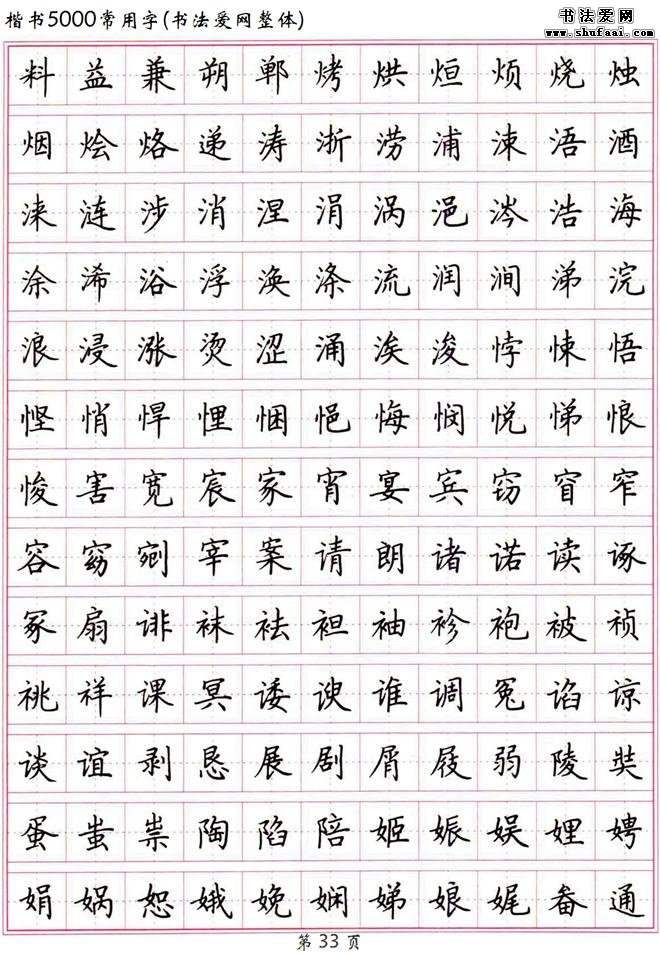 楷书5000常用字(书法爱网整体)
书法爱网
www.shufaai.com
料益兼朔郸烤烘烜烦烧烛
烟烩烙递涛浙涝浦涑浯酒
涞涟涉消涅涓涡浥涔浩海
涂浠浴浮涣涤流润涧涕浣
浪浸涨烫涩涌涘浚悖悚悟
悭悄悍悝悃悒悔悯悦悌悢
悛害宽宸家宵宴宾窃窅窄
容窈剜宰案请朗诸诺读诼
冢扇诽袜祛袒袖袗袍被祯
祧祥课冥诿谀谁调冤谄谅
谈谊剥恳展剧屑屐弱陵奘
蛋蚩祟陶陷陪姬娠娱娌娉
娟娲恕娥娩娴娣娘娓畚通
第 33 页